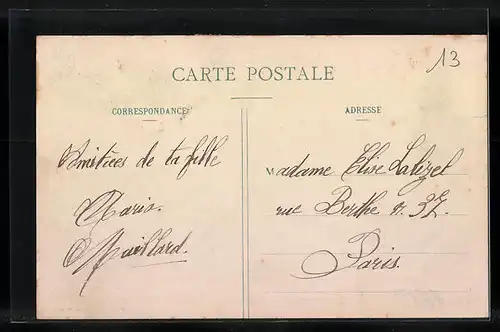 13
CARTE POSTALE
CORRESPONDANCE
Amitiées de ta fille
Maria.
Maillard.
ADRESSE
Madame Elise Lalizel
rue Berthe n. 37.
Paris.